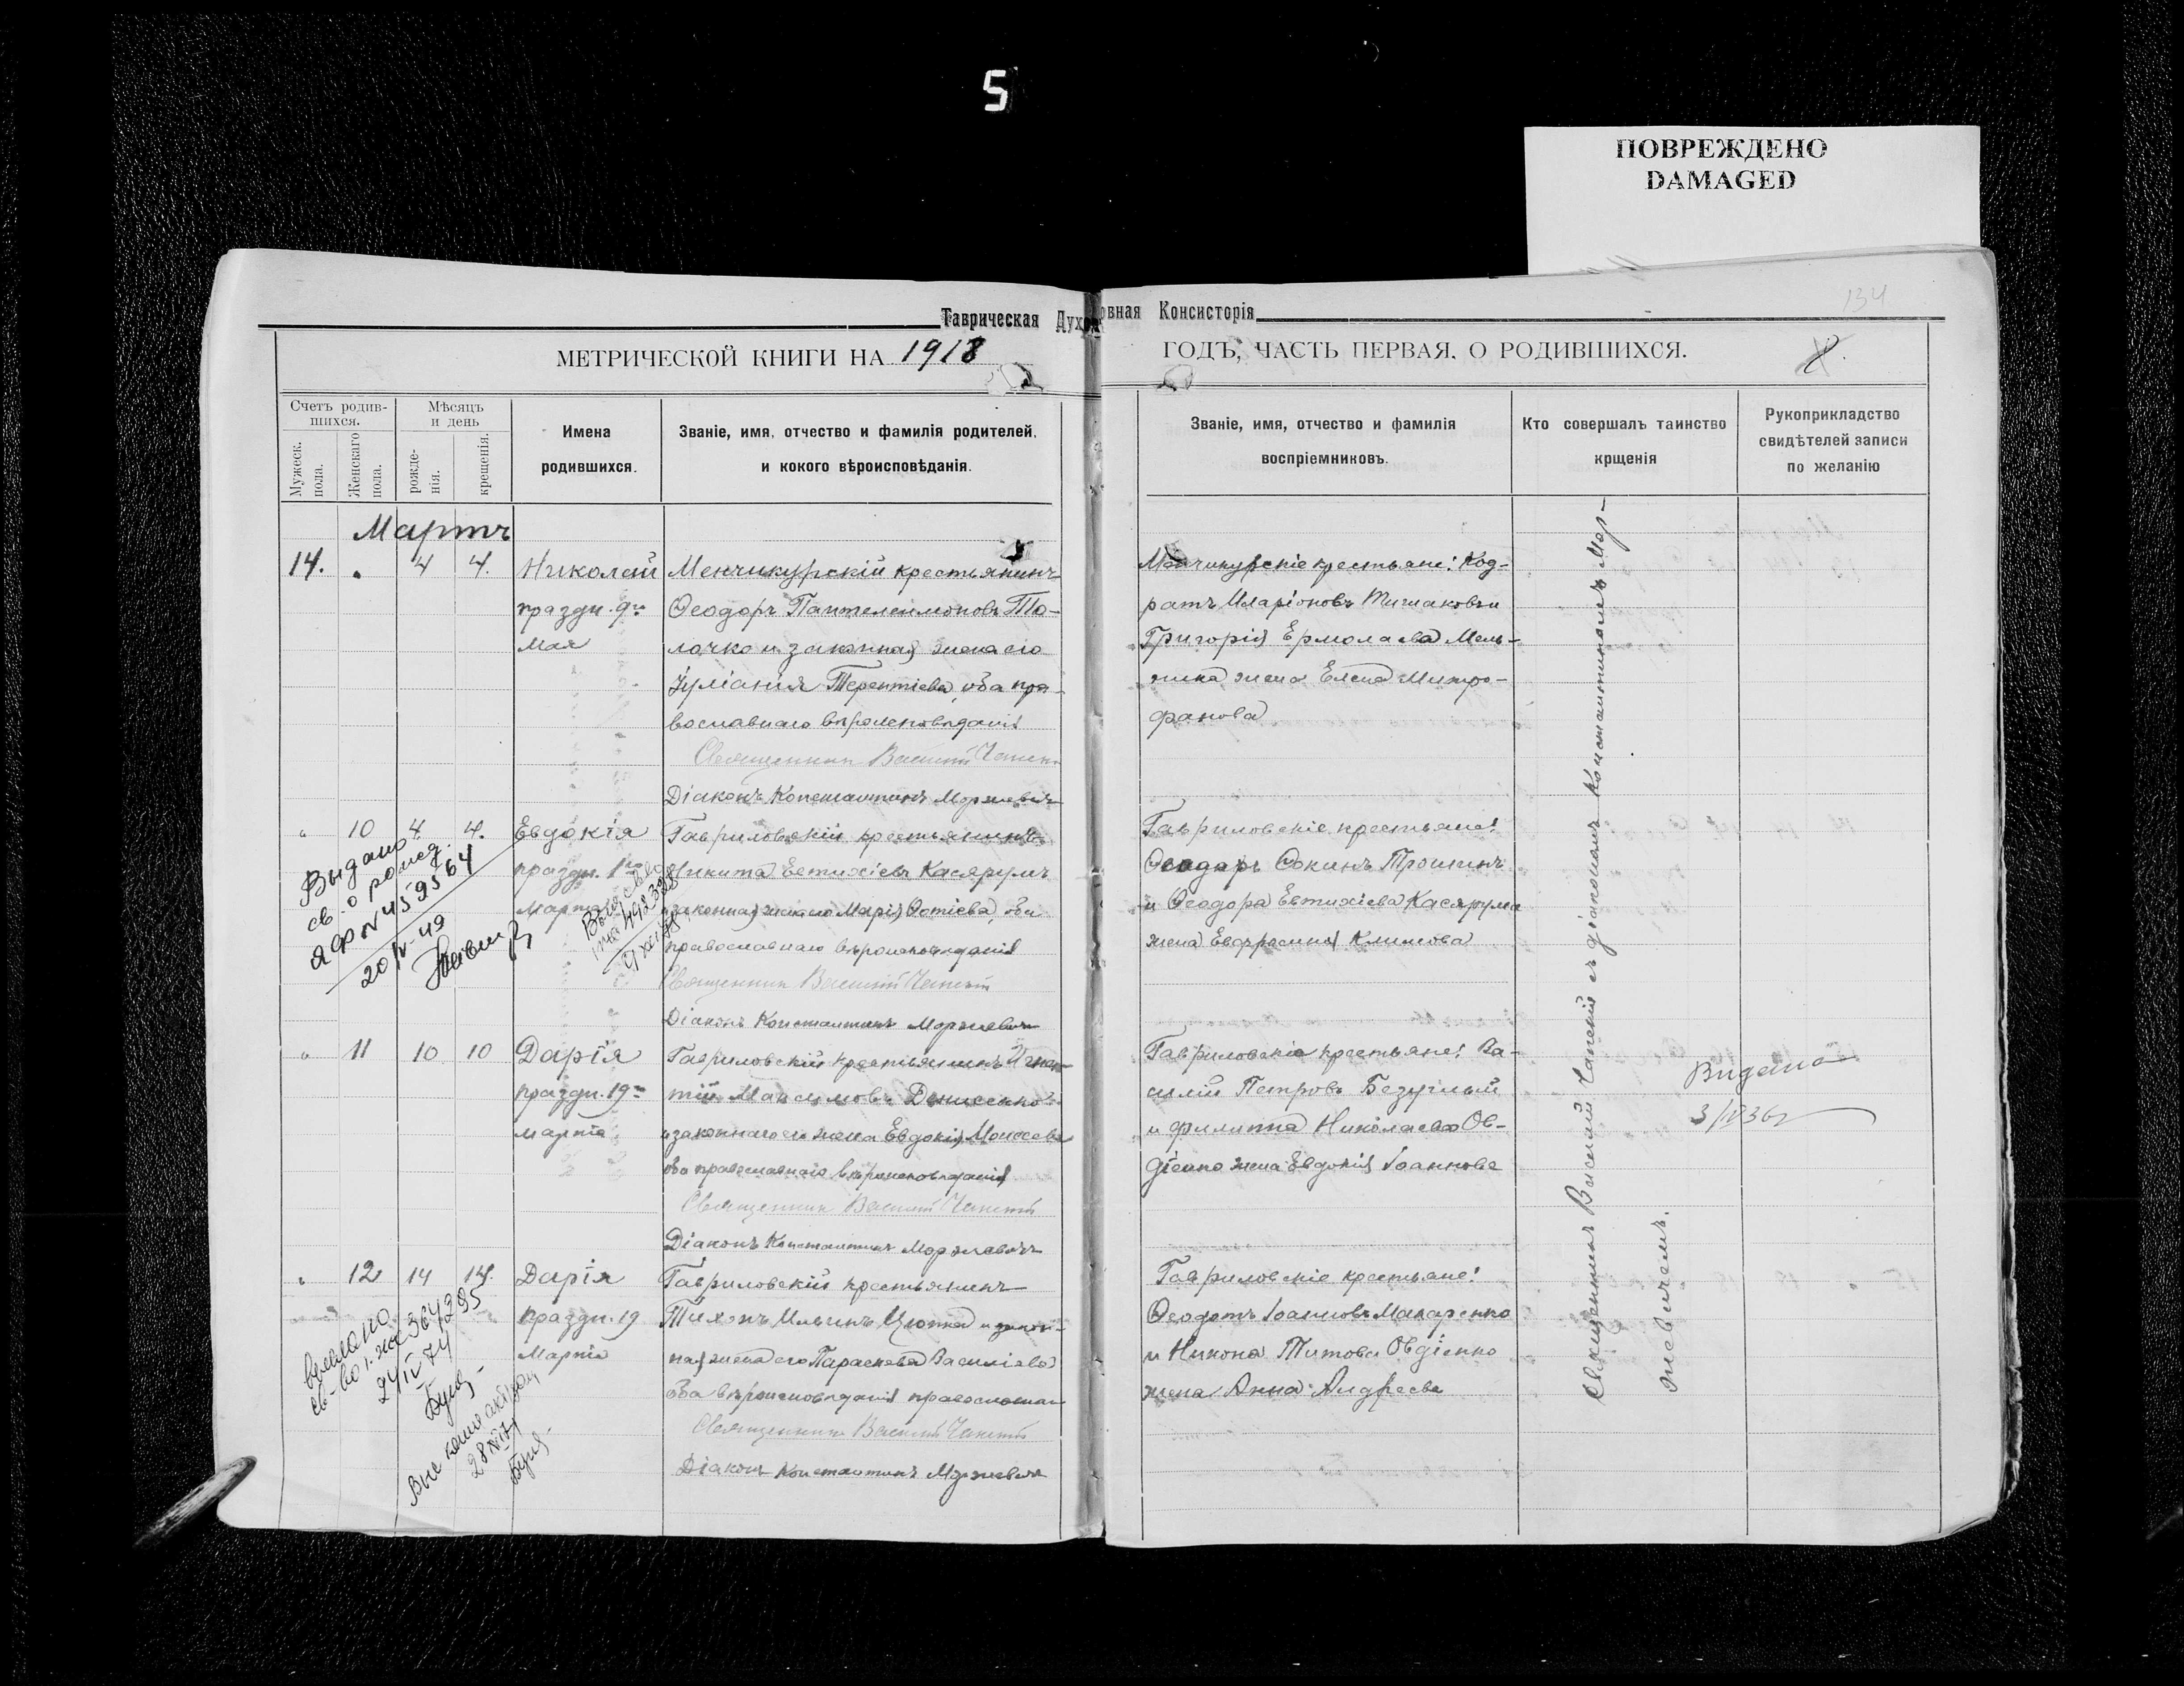 5
ПОВРЕЖДЕНО
DAMAGED
134
Таврическая Духовная Консисторія
МЕТРИЧЕСКОЙ КНИГИ НА 1918 ГОДЪ, ЧАСТЬ ПЕРВАЯ, О РОДИВШИХСЯ.
Счетъ родив-
шихся.
Мужеск.
пола.
Женскаго
пола.
Мѣсяцъ
и день
рожде-
нія.
крещенія.
Имена
родившихся.
Званіе, имя, отчество и фамилія родителей,
и кокого вѣроисповѣданія.
Званіе, имя, отчество и фамилія
воспріемниковъ.
Кто совершалъ таинство
крщенія
Рукоприкладство
свидѣтелей записи
по желанію
Мартъ
14. " 4 4.
Николай
праздн. 9го
мая
Менчикурскій крестьянинъ
Ѳеодоръ Пантелеимоновъ То-
лочко и законная жена его
Іуліанія Терентіева, оба пра-
вославнаго вѣроисповѣданія
Священникъ Василій
Діаконъ Константинъ Моржевичъ
Менчикурскіе крестьяне: Код-
ратъ Иларіоновъ Тишаковъ и
Григорія Ермолаева Мель-
ника жена Елена Митро-
фанова
" 10 4 4.
Евдокія
праздн. 1го
марта
Гавриловскій крестьянинъ
Никита Евтихіевъ Касярумъ
и законная жена его Марія Фотіева, оба
православнаго вѣроисповѣданія
Священникъ Василій
Діаконъ Константинъ Моржевичъ
Гавриловскіе крестьяне:
Ѳеодоръ Фокинъ Трошинъ
и Ѳеодора Евтихіева Касярума
жена Евфросинія Климова
Выдано
св. о рожд.
ЯФ № 459564
20/IV-49
" 11 10 10
Дарія
праздн. 19го
марта
Гавриловскій крестьянинъ Игна-
тій Максимовъ Денисенко
и законная его жена Евдокія Моисеева
оба православнаго вѣроисповѣданія
Священникъ Василій
Діаконъ Константинъ Моржевичъ
Гавриловскіе крестьяне: Ва-
силій Петровъ Безуглый
и Филиппа Николаева Ов-
діенко жена Евдокія Іоаннова
Видано
3/IV 36
" 12 14 14.
Дарія
праздн. 19
Марта
Гавриловскій крестьянинъ
Тихонъ Ильинъ Цюпка и закон-
ная жена его Параскева Василіева
оба вѣроисповѣданія православнаго
Священникъ Василій
Діаконъ Константинъ Моржевичъ
Гавриловскіе крестьяне:
Ѳеодотъ Іоанновъ Макаренко
и Никона Титова Овдіенко
жена Анна Андреева
24/IV 74
Священникъ Василій с діакономъ Константиномъ Мор-
жевичемъ.